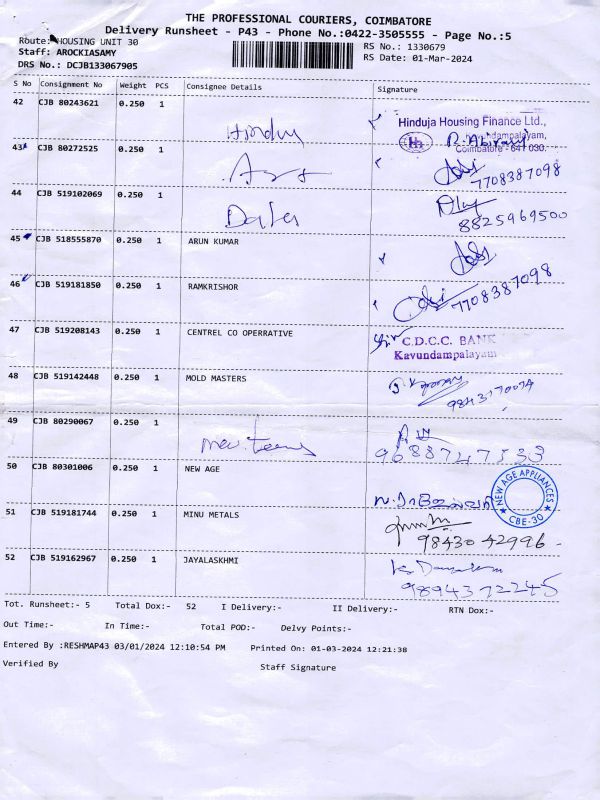 THE PROFESSIONAL COURIERS, COIMBATORE
Delivery Runsheet - P43 - Phone No.:0422-3505555 - Page No.:5
Route: HOUSING UNIT 30
RS No.: 1330679
Staff: AROCKIASAMY
RS Date: 01-Mar-2024
DRS No.: DCJB133067905
S No Consignment No Weight PCS Consignee Details Signature
42 CJB 80243621 0.250 1 Hindu
Hinduja Housing Finance Ltd.,
Kavundampalayam,
Coimbatore - 641 030.
43 CJB 80272525 0.250 1
7708387098
44 CJB 519102069 0.250 1
8825969500
45 CJB 518555870 0.250 1 ARUN KUMAR
46 CJB 519181850 0.250 1 RAMKRISHOR
7708387098
47 CJB 519208143 0.250 1 CENTREL CO OPERRATIVE
C.D.C.C. BANK
Kavundampalayam
48 CJB 519142448 0.250 1 MOLD MASTERS
49 CJB 80290067 0.250 1
9688747533
50 CJB 80301006 0.250 1 NEW AGE
NEW AGE APPLIANCES
CBE-30
51 CJB 519181744 0.250 1 MINU METALS
98430 42996
52 CJB 519162967 0.250 1 JAYALASKHMI
9894372245
Tot. Runsheet:- 5 Total Dox:- 52 I Delivery:- II Delivery:- RTN Dox:-
Out Time:- In Time:- Total POD:- Delvy Points:-
Entered By :RESHMAP43 03/01/2024 12:10:54 PM Printed On: 01-03-2024 12:21:38
Verified By Staff Signature